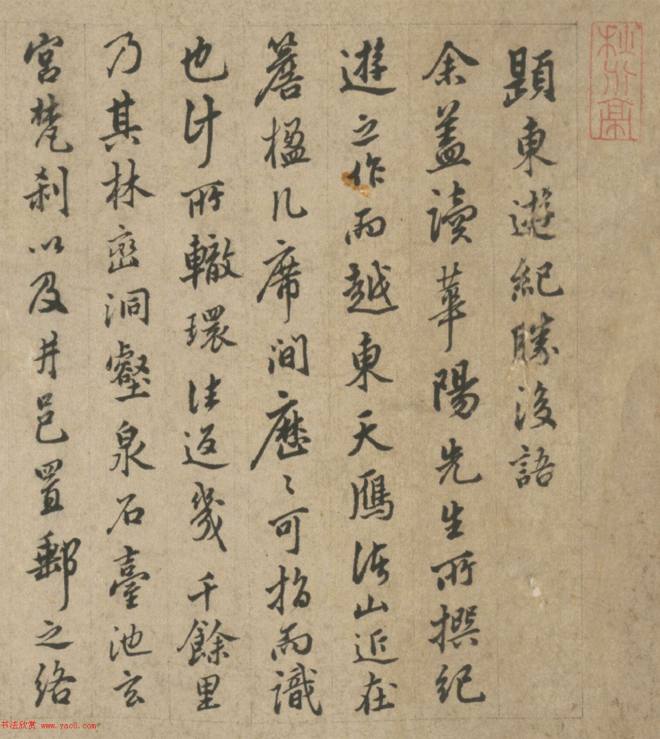 題東遊紀勝後語
余蓋讀華陽先生所撰紀
遊之作而越東天鴈諸山近在
簷楹几席間歷〻可指而識
也計所轍環往返幾千餘里
乃其林巒洞壑泉石臺池玄
宮梵剎以及井邑置郵之絡
书法欣赏 www.yac8.com